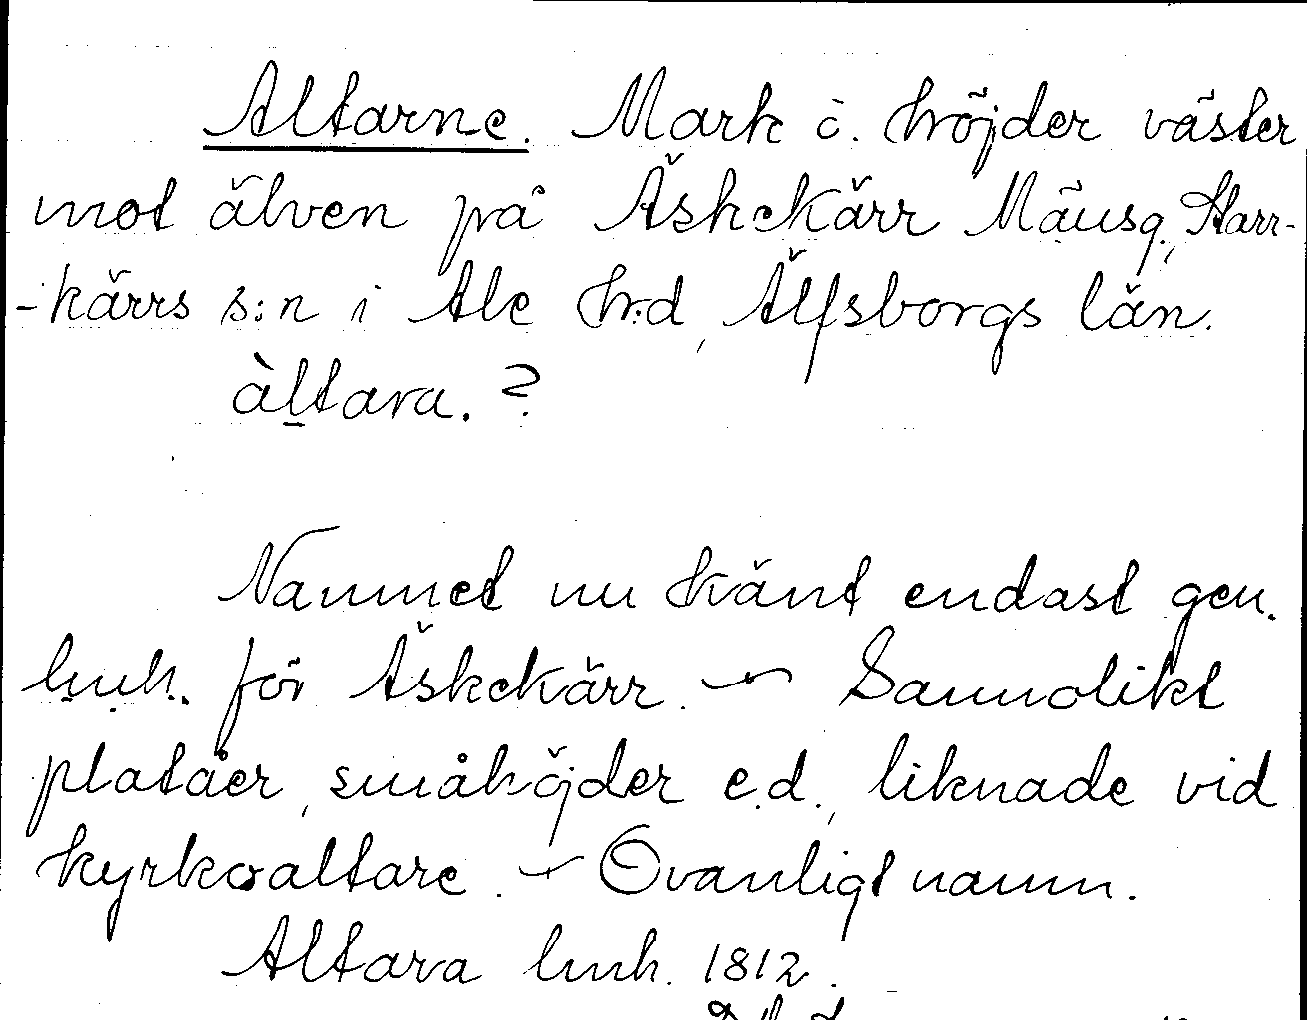 Altarne. Mark i. höjder väster
mot älven på Äskekärr Mäusg., Starr-
-kärrs s:n i Ale hrd, Älfsborgs län.
àltara. ?
Namnet nu känt endast gen.
lmh. för Äskekärr. – Sannolikt
platåer, småhöjder e.d., liknade vid
kyrkoaltare. – Ovanligt namn.
Altara lmh. 1812.